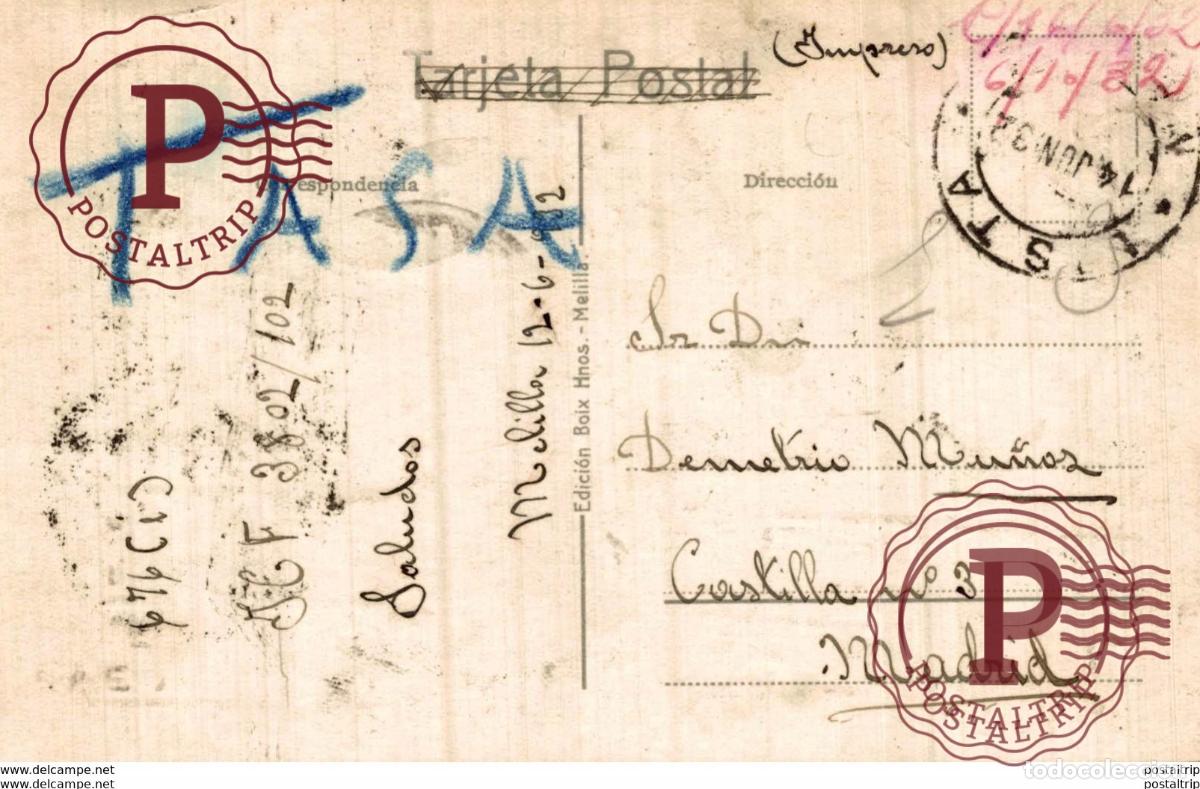 Tarjeta Postal
(Impreso)
6/10/32
14 JUN 32
LISTA
TASA
Correspondencia
Dirección
Sr Dn
Demetrio Muñoz
Castilla nº 3
Madrid
Edición Boix Hnos. - Melilla.
Melilla 12-6-932
Saludos
3802/102
POSTALTRIP
POSTALTRIP
POSTALTRIP
www.delcampe.net
www.delcampe.net
todocoleccion
postaltrip
postaltrip